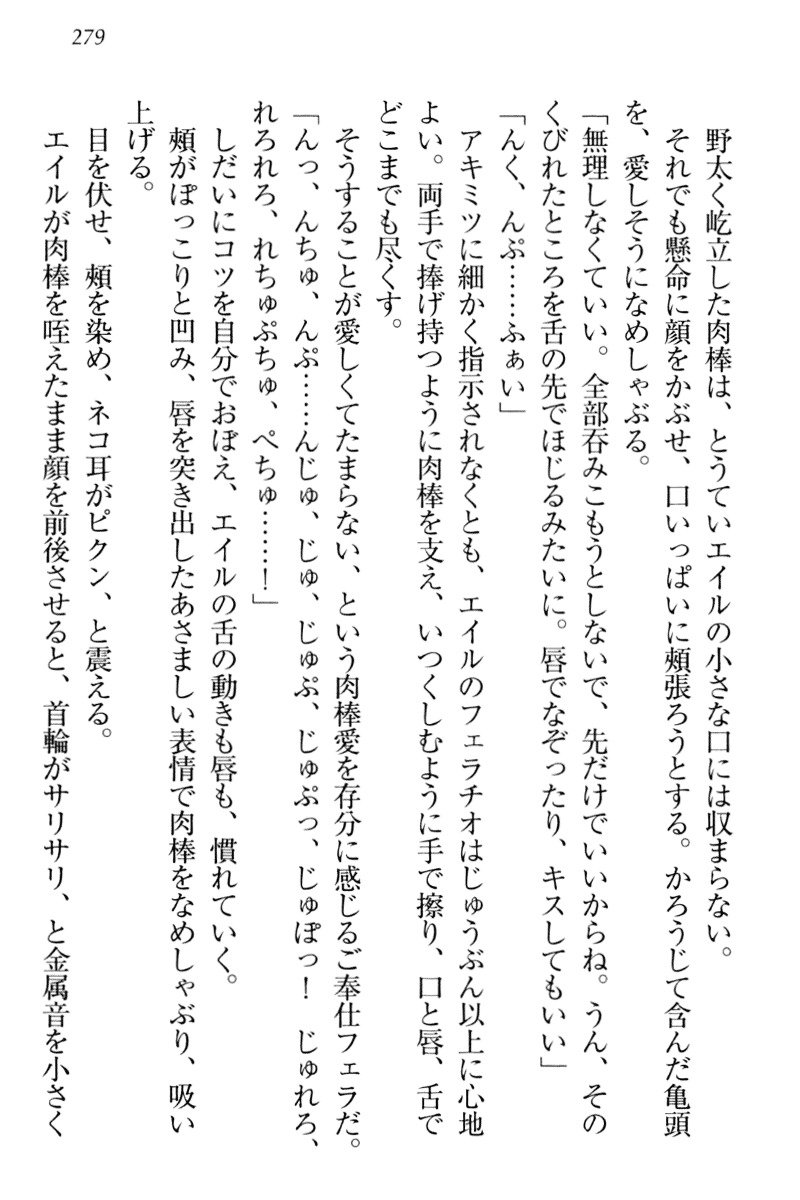 279
野太く屹立した肉棒は、とうていエイルの小さな口には収まらない。
それでも懸命に顔をかぶせ、口いっぱいに頬張ろうとする。かろうじて含んだ亀頭
を、愛しそうになめしゃぶる。
「無理しなくていい。全部呑みこもうとしないで、先だけでいいからね。うん、その
くびれたところを舌の先でほじるみたいに。唇でなぞったり、キスしてもいい」
「んく、んぷ……ふぁい」
アキミツに細かく指示されなくとも、エイルのフェラチオはじゅうぶん以上に心地
よい。両手で捧げ持つように肉棒を支え、いつくしむように手で擦り、口と唇、舌で
どこまでも尽くす。
そうすることが愛しくてたまらない、という肉棒愛を存分に感じるご奉仕フェラだ。
「んっ、んちゅ、んぷ……んじゅ、じゅ、じゅぷ、じゅぷっ、じゅぽっ！　じゅれろ、
れろれろ、れちゅぷちゅ、ぺちゅ……！」
しだいにコツを自分でおぼえ、エイルの舌の動きも唇も、慣れていく。
頬がぽっこりと凹み、唇を突き出したあさましい表情で肉棒をなめしゃぶり、吸い
上げる。
目を伏せ、頬を染め、ネコ耳がピクン、と震える。
エイルが肉棒を咥えたまま顔を前後させると、首輪がサリサリ、と金属音を小さく